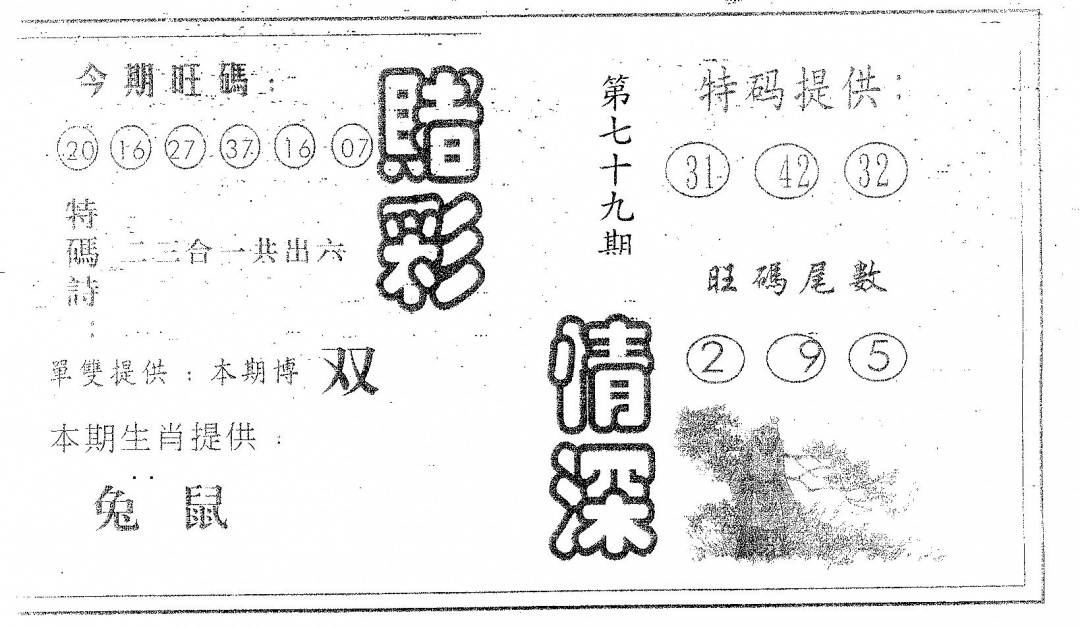 今期旺碼：
20 16 27 37 16 07
特碼詩：
二三合一共出六
單雙提供：本期博 双
本期生肖提供：
兔 鼠
賭彩
情深
第七十九期
特码提供：
31 42 32
旺碼尾數
2 9 5